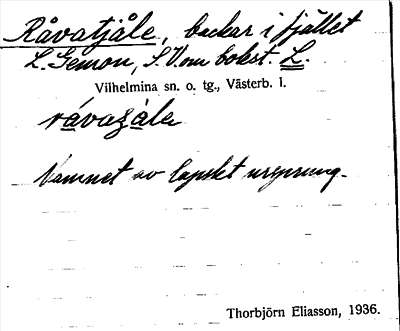 Råvatjåle, backar i fjället
L. Gemon, S.V. om bokst. L.
Vilhelmina sn. o. tg., Västerb. l.
rávaʒále
Namnet av lapskt ursprung.
Thorbjörn Eliasson, 1936.